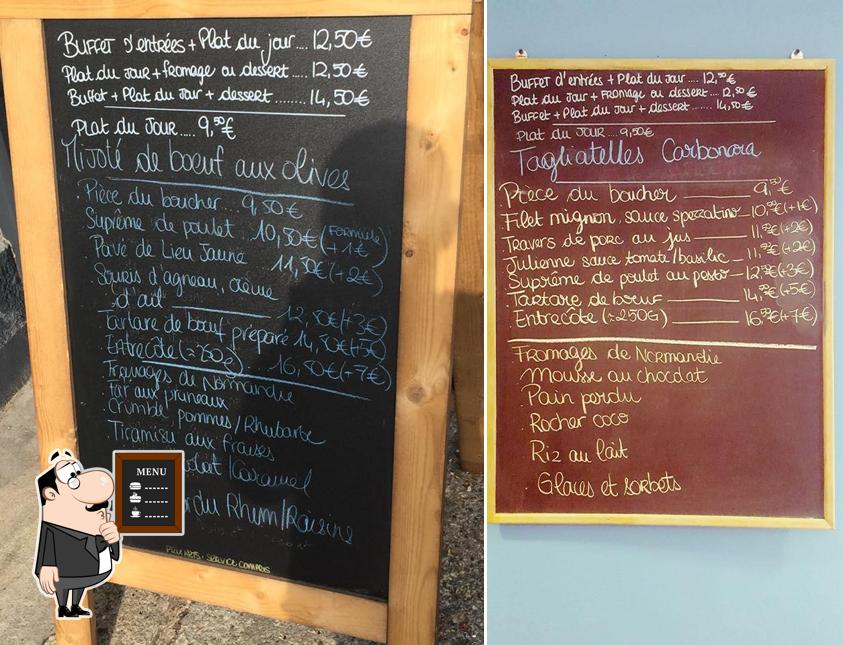 Buffet d'entrées + Plat du jour.... 12,50€
Plat du Jour + fromage ou dessert .... 12,50€
Buffet + Plat du Jour + dessert ........ 14,50€
Plat du Jour..... 9,50€
Mijoté de boeuf aux olives
Pièce du boucher... 9,50€
Suprême de poulet . 10,50€ (Formule + 1€)
Pavé de Lieu Jaune 11,50€ (+2€)
Souris d'agneau, crème
d'ail 12,50€ (+3€)
Tartare de boeuf préparé 14,50€ (+5€)
Entrecôte (≈250g) 16,50€ (+7€)
Fromages de Normandie
Far aux pruneaux
Crumble pommes / Rhubarbe
Tiramisu aux fraises
/ Caramel
du Rhum / Raisins
PRIX NETS - SERVICE COMPRIS
MENU
Buffet d'entrées + Plat du Jour .... 12,50€
Plat du Jour + Fromage ou dessert .... 12,50€
Buffet + Plat du Jour + dessert ...... 14,50€
Plat du Jour ..... 9,50€
Tagliatelles Carbonara
Pièce du boucher 9,50€
Filet mignon, sauce spezzatino 10,50€ (+1€)
Travers de porc au jus 11,50€ (+2€)
Julienne sauce tomate/basilic 11,50€ (+2€)
Suprême de poulet au pesto 12,50€ (+3€)
Tartare de boeuf 14,50€ (+5€)
Entrecôte (≈250G) 16,50€ (+7€)
Fromages de Normandie
Mousse au chocolat
Pain perdu
Rocher coco
Riz au lait
Glaces et sorbets